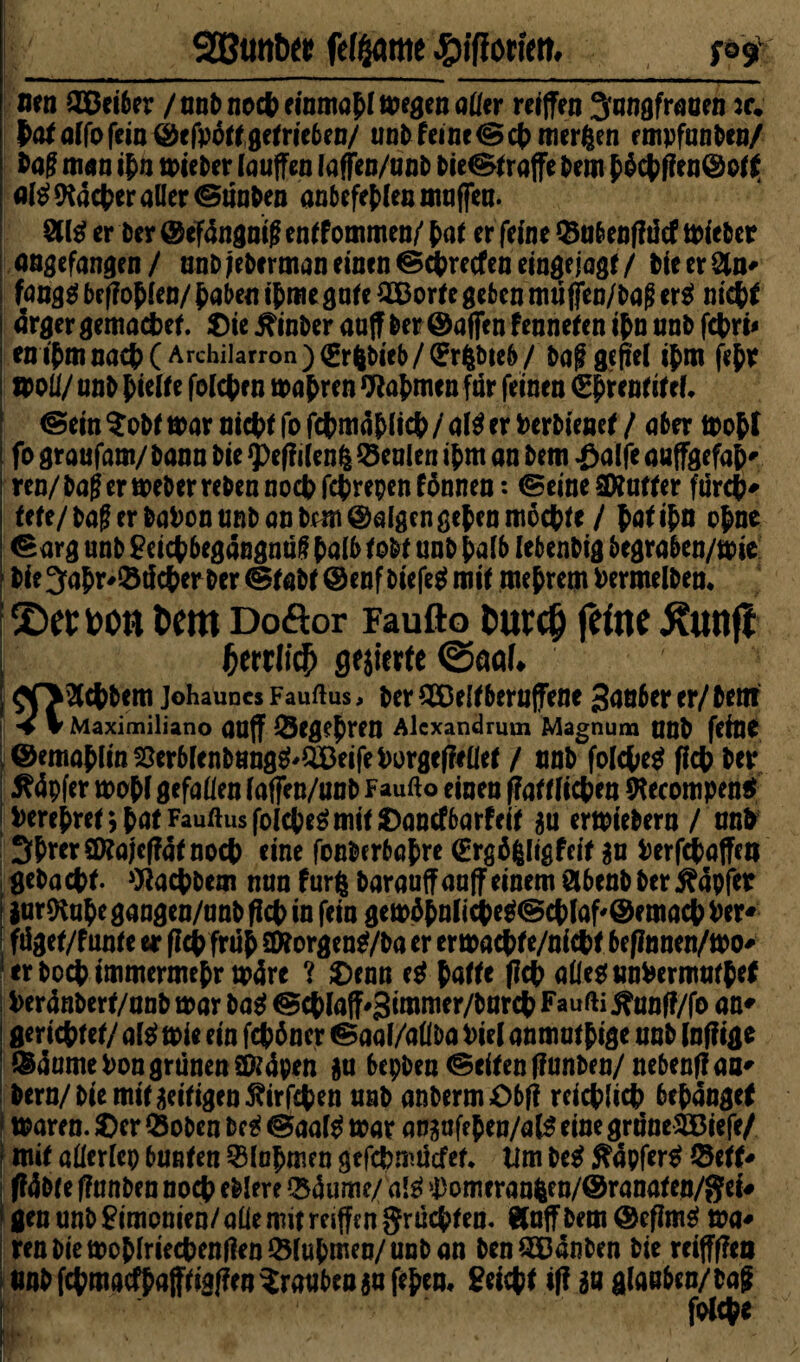 Wunder seltzame Historien. 509
nen Weiber / und noch einmahl wegen aller reiffen Jungfrauen ꝛc.
hat also sein Gespött getrieben/ und keine Schmertzen empfunden/
daß man ihn wieder lauffen lassen/und die Straffe dem höchsten Gott
als Rächer aller Sünden anbefehlen mussen.
Als er der Gefängniß entkommen/ hat er seine Bubenstück wieder
angefangen / und jederman einen Schrecken eingejagt / die er An-
fangs bestohlen/ haben ihme gute Worte geben müssen/daß ers nicht
ärger gemachet. Die Kinder auff der Gassen kenneten ihn und schri-
en ihm nach ( Archilarron ) Ertzdieb / Ertzdieb / daß gefiel ihm sehr
woll/ und hielte solchen wahren Nahmen für seinen Ehrentitel.
Sein Todt war nicht so schmählich / als er verdienet / aber wohl
so grausam/ dann die Pestilentz Beulen ihm an dem Halse auffgefah-
ren/ daß er weder reden noch schreyen können: Seine Mutter fürch-
tete/ daß er davon und an dem Galgen gehen möchte / hat ihn ohne
Sarg und Leichbegängnüß halb todt und halb lebendig begraben/wie
die Jahr-Bücher der Stadt Genf dieses mit mehrem vermelden.
Der von dem Doctor Fausto durch seine Kunst
herrlich gezierte Saal.
Nachdem Johaunes Faustus, der Weltberuffene Zauberer/dem
Maximiliano auff Begehren Alexandrum Magnum und seine
Gemahlin Verblendungs-Weise vorgestellet / und solches sich der
Käyser wohl gefallen lassen/und Fausto einen stattlichen Recompens
verehret; hat Faustus solches mit Danckbarkeit zu erwiedern / und
Ihrer Majestät noch eine sonderbahre Ergötzligkeit zu verschaffen
gedacht. Nachdem nun kurtz darauff auff einem Abend der Käyser
zur Ruhe gangen/und sich in sein gewöhnliches Schlaf-Gemach ver-
füget/kunte er sich früh Morgens/da er erwachte/nicht besinnen/wo-
er doch immermehr wäre ? Denn es hatte sich alles unvermuthet
verändert/und war das Schlaff-Zimmer/durch Fausti Kunst/so an-
gerichtet/ als wie ein schöner Saal/allda viel anmuthige und lustige
Bäume von grünen Mäyen zu beyden Seiten stunden/ nebenst an-
dern/ die mit zeitigen Kirschen und anderm Obst reichlich behänget
waren. Der Boden des Saals war anzusehen/als eine grüne Wiese/
mit allerley bunten Bluhmen geschmücket. Um des Käysers Bett-
städte stunden noch edlere Bäume/ als Pomerantzen/Granaten/Fei-
gen und Limonien/ alle mit reiffen Früchten. Auff dem Gesims wa-
ren die wohlriechensten Bluhmen/ und an den Wänden die reiffsten
und schmackhafftigsten Trauben zu sehen. Leicht ist zu glauben/ daß
solche